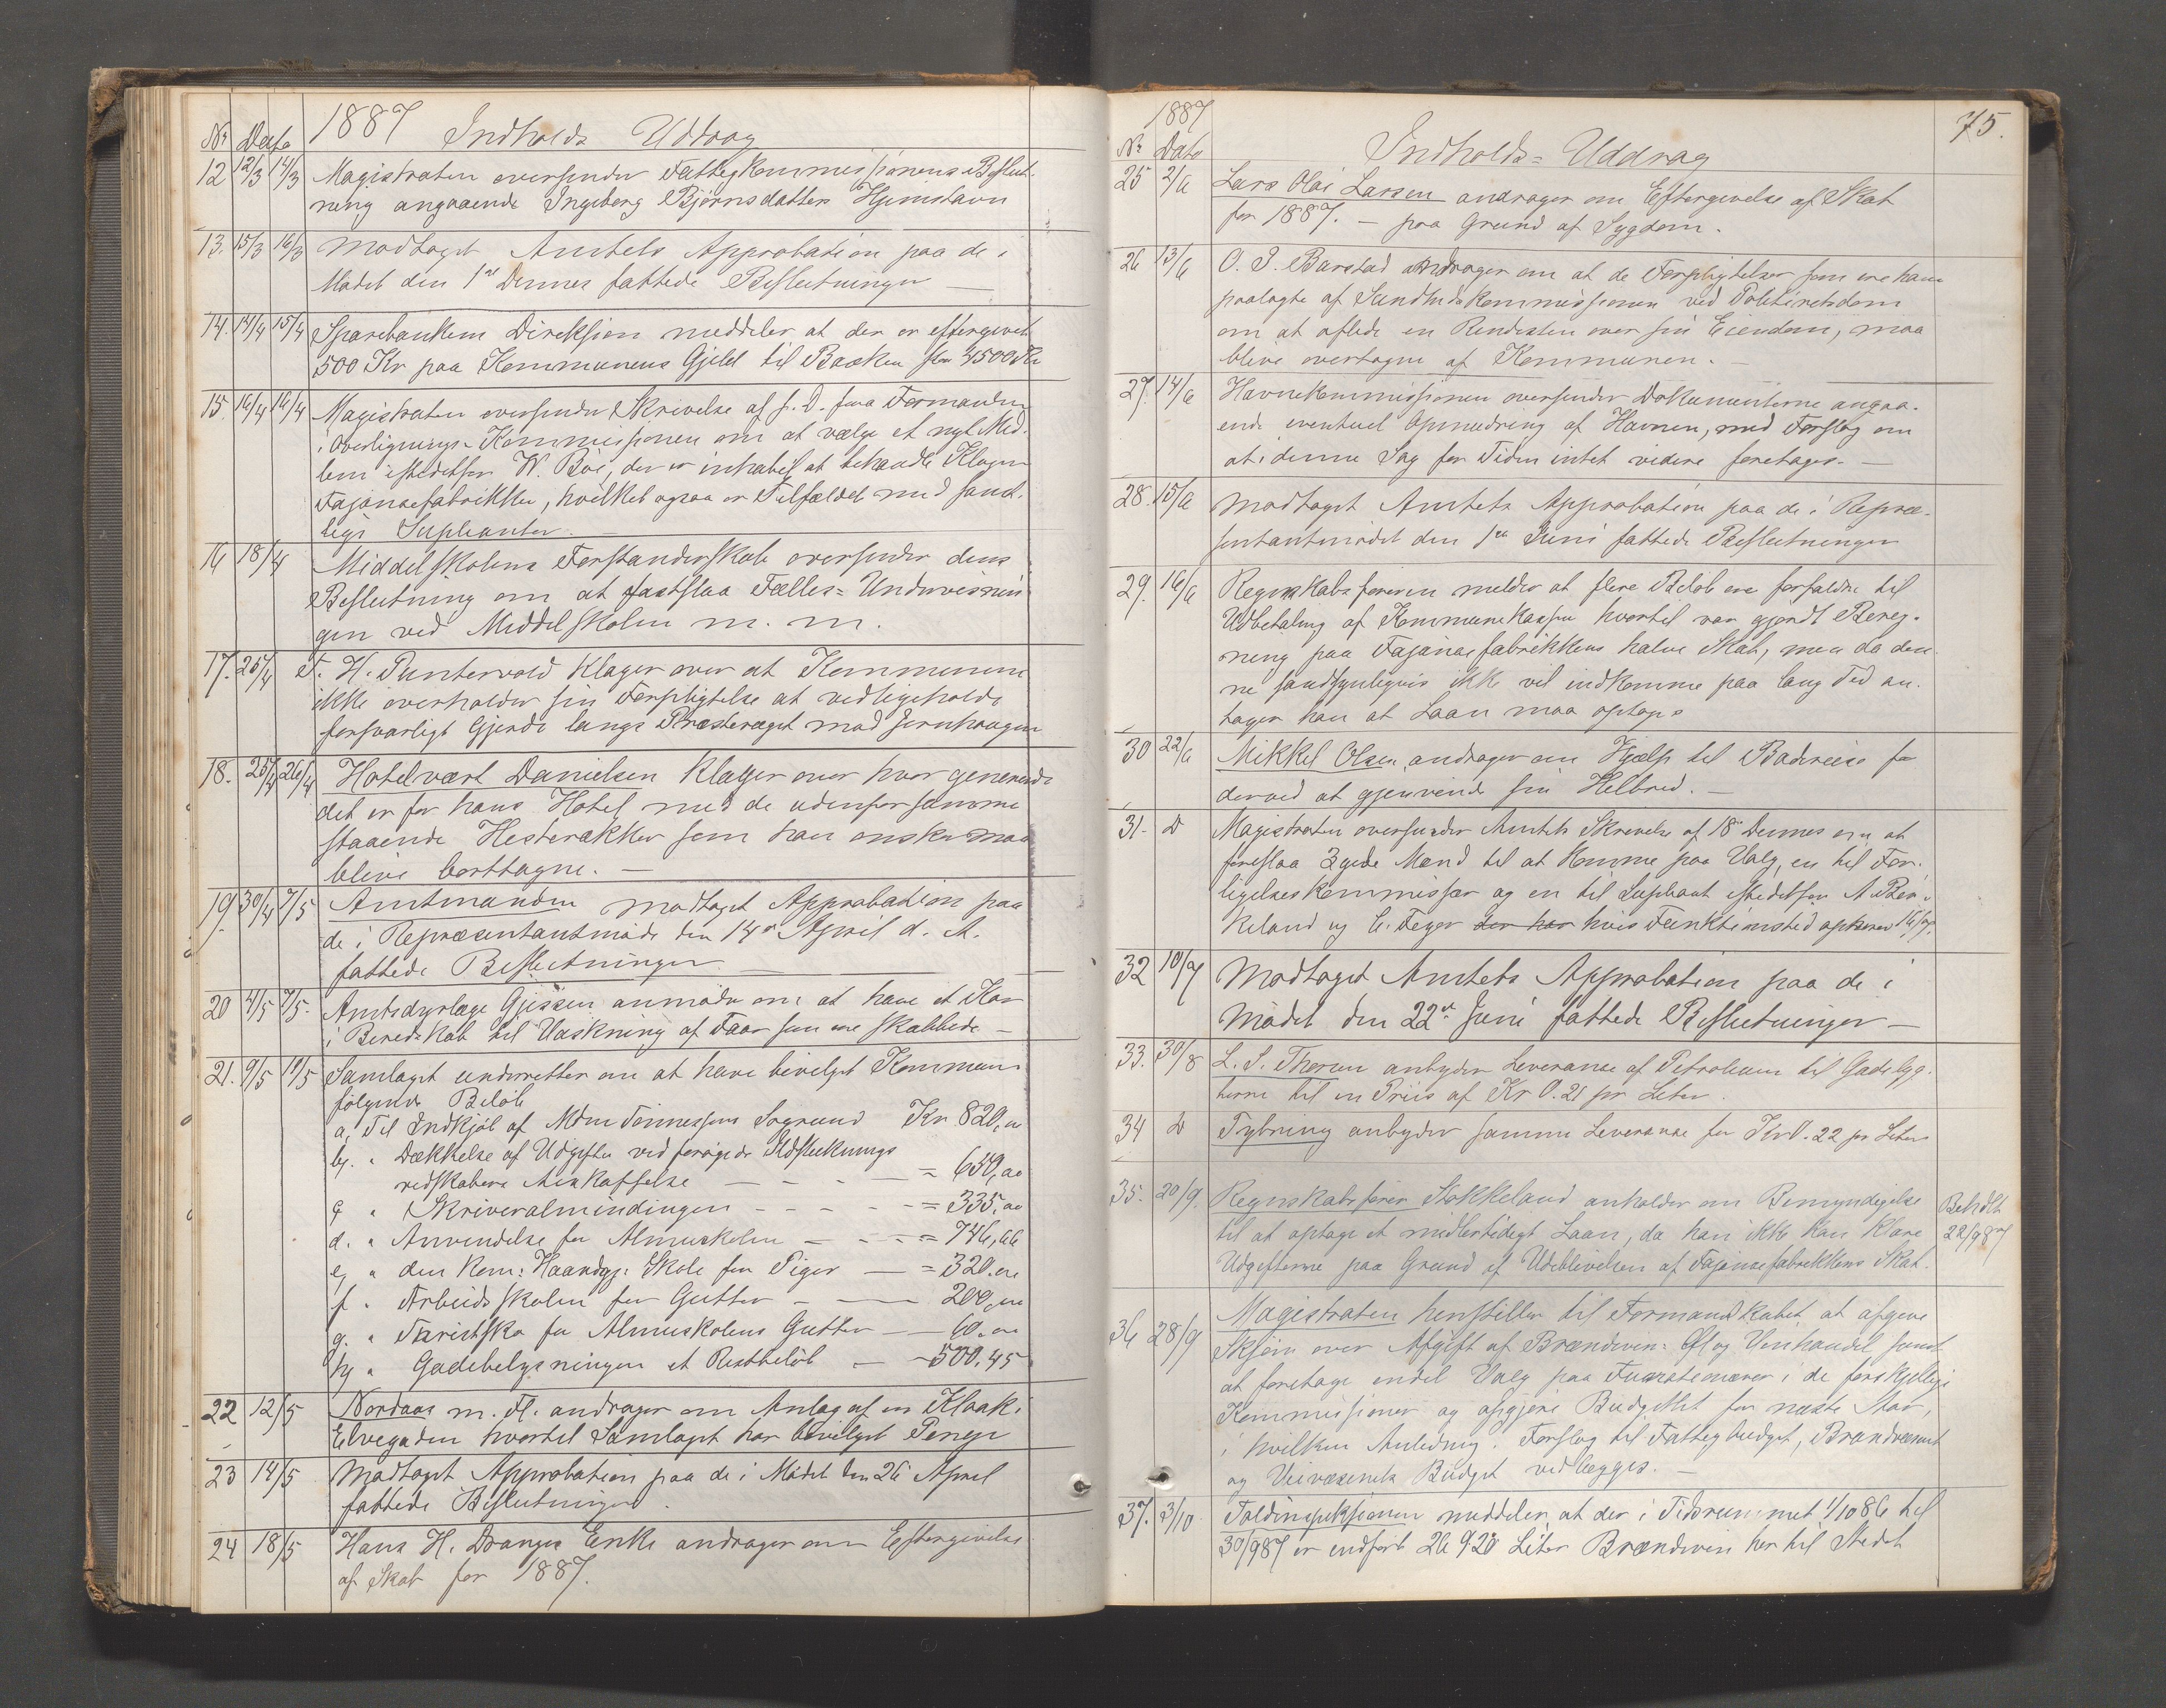 1887 Indholds Uddrag
Nr Dato
12 12/3 14/3 Magistraten oversender Fattigkommissionens Beslut-
ning angaaende Ingeborg Bjørnsdatters Hjemstavn
13. 15/3 16/3 Modtaget Amtets Approbation paa de i
Mødet den 1ste Dennes fattede Beslutninger —
14. 14/4 15/4 Sparebankens Direksion meddeler at der er eftergivet
500 Kr paa Kommunens Gjeld til Banken stor 4500 Kr
15. 16/4 16/4 Magistraten oversender Skrivelse af s. D. fra Formanden
i Overlignings-Kommissionen om at vælge et nyt Med-
lem istedetfor W. Böe, der er inhabil at behandle Klagen
Fajansefabrikken, hvilket ogsaa er Tilfældet med samt-
lige Suplianter.
16 18/4 Middelskolens Forstanderskab oversender dens
Beslutning om at fastslaa Fælles-Undervisnin-
gen ved Middelskolen m. m.
17. 25/4 T. H. Puntervold klager over at Kommunen
ikke overholder sin Forpligtelse at vedligeholde
forsvarligt Gjerde langs Præsteveget mod Jernhaugen
18. 25/4 26/4 Hotelvært Danielsen klager over hvor generende
det er for hans Hotel med de udenfor samme
staaende Hesterækker som han ønsker maa
blive borttagne. —
19. 30/4 7/5 Amtmanden modtaget Approbation paa
de i Repræsentantmøde den 14de April d. A.
fattede Beslutninger —
20 4/5 7/5 Amtsdyrlæge Gjessen anmoder om at have et Kar
i Beredskab til Vaskning af Faar som ere skabbede —
21. 9/5 10/5 Samlaget underretter om at have bevilget Kommunen
følgende Beløb
a, Til Indkjøb af Mdm Tønnessens Sogrund Kr 820,00
b, " Dækkelse af Udgifter ved forøgede Ildslukningsr
redskabers Anskaffelse — — — = 650,00
c " Skriveralmindingen — — — = 335,00
d. " Anvendelse for Almueskolen — — = 746,66
e, " den kom: Haandgj: Skole for Piger — = 320.00
f " Arbeidsskolen for Gutter — — 200,00
g. " Turistsko for Almueskolens Gutter — 60.00
h, " Gadebelysningen et Restbeløb — 500.45
22 12/5 Nordaas m. Fl. andrager om Anlæg af en Kloak i
Elvegaden hvortil Samlaget har bevilget Penge
23 14/5 Modtaget Approbation paa de i Mødet den 26 April
fattede Beslutninger.
24 18/5 Hans H. Dranges Enke andrager om Eftergivelse
af Skat for 1887.
75.
1887
Nr Dato Indholds-Uddrag
25 2/6 Lars Olai Larsen andrager om Eftergivelse af Skat
for 1887. — paa Grund af Sygdom.
26 13/6 O. I. Barstad andrager om at de Forpligtelser som ere ham
paalagte af Sundhedskommissionen ved Politiretsdom
om at aflede en Rendesten over sin Eiendom, maa
blive overtagne af Kommunen.
27. 14/6 Havnekommissionen oversender Dokumenterne angaa-
ende eventuel Opmudring af Havnen, med Forslag om
at i denne Sag for Tiden intet videre foretages. —
28. 15/6 Modtaget Amtets Approbation paa de i Repræ-
sentantmødet den 1ste Juni fattede Beslutninger
29. 16/6 Regnskabsføreren melder at flere Beløb ere forfaldne til
Udbetaling af Kommunekassen hvortil var gjordt Bereg-
ning paa Fajansefabrikkens halve Skat, men da den-
ne sandsynligvis ikke vil indkomme paa lang Tid an-
tager han at Laan maa optages
30 22/6 Mikkel Olsen andrager om Hjælp til Badereise for
derved at gjenvinde sin Helbred. —
31- D Magistraten oversender Amtets Skrivelse af 18de Dennes om at
foreslaa 3gde Mænd til at komme paa Valg, en til For-
ligelseskommissær og en til Supleant istedetfor A. Ber-
keland og E. Feyer der har hvis Funktionstid ophører 16/7.
32 10/7 Modtaget Amtets Approbation paa de i
Mødet den 22de Juni fattede Beslutninger —
33. 30/8 L. S. Thorsen anbyder Leveranse af Petroleum til Gadelyg-
terne til en Priis af Kr 0.21 pr Liter.
34 D Tybring anbyder samme Leveranse for Kr 0.22 pr Liter
35. 20/9. Regnskabsfører Stokkeland anholder om Bemyndigelse
til at optage et midlertidigt Laan, da han ikke kan klare
Udgifterne paa Grund af Udeblivelsen af Fajansefabrikkens Skat.
Behdlt
22/9 87
36 28/9 Magistraten henstiller til Formandskabet at afgive
Skjøn over Afgift af Brændevin- Øl og Vinhandel samt
at foretage endel Valg paa Funktionærer i de forskjellige
Kommissioner og afgjøre Budgettet for næste Aar,
i hvilken Anledning. Forslag til Fattigbudget, Brandvæsenet
og Veivæsenets Budget vedlægges. —
37. 3/10 Toldinspeksionen meddeler at der i Tidsrummet 1/10 86 til
30/9 87 er indført 26 920 Liter Brændevin her til Stedet